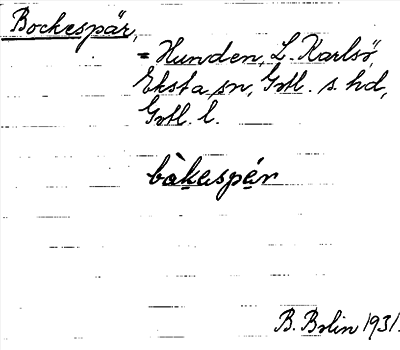 Bockespär,
= Hunden, L. Karlsö,
Eksta sn, Gotl. s. hd,
Gotl. l.
bàkespér
B. Bolin 1931.